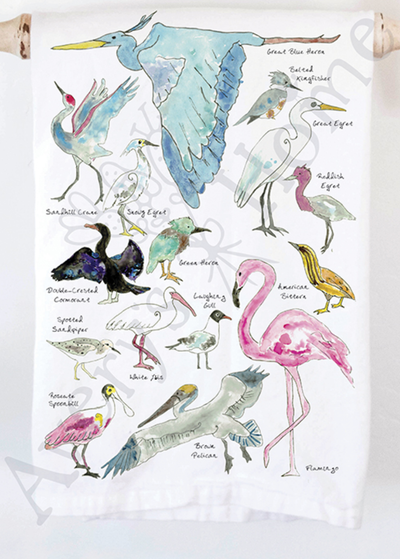 Great Blue Heron
Belted
Kingfisher
Great Egret
Reddish
Egret
Sandhill Crane
Snowy Egret
Green Heron
Double-Crested
Cormorant
Laughing
Gull
American
Bittern
Spotted
Sandpiper
White Ibis
Roseate
Spoonbill
Brown
Pelican
Flamingo
Home